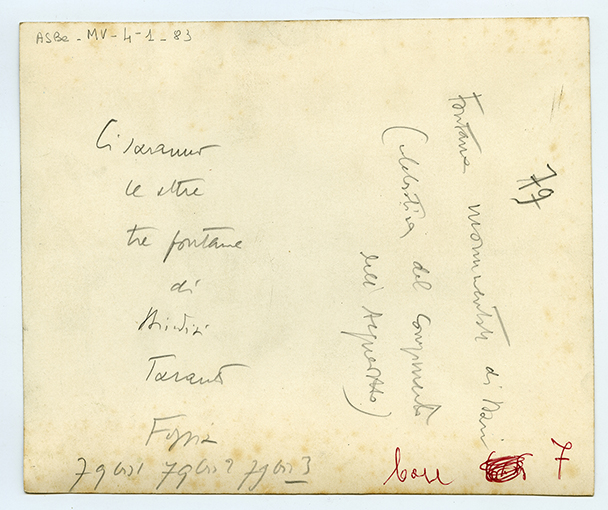 ASBa - MV - 4 - 1 - 83
Ci saranno
le altre
tre fontane
di
Brindisi
Taranto
Foggia
79 bis 1 79 bis 2 79 bis 3
Fontana monumentale di Bari
(celebrativa del compimento
dell'Acquedotto)
79
base
7